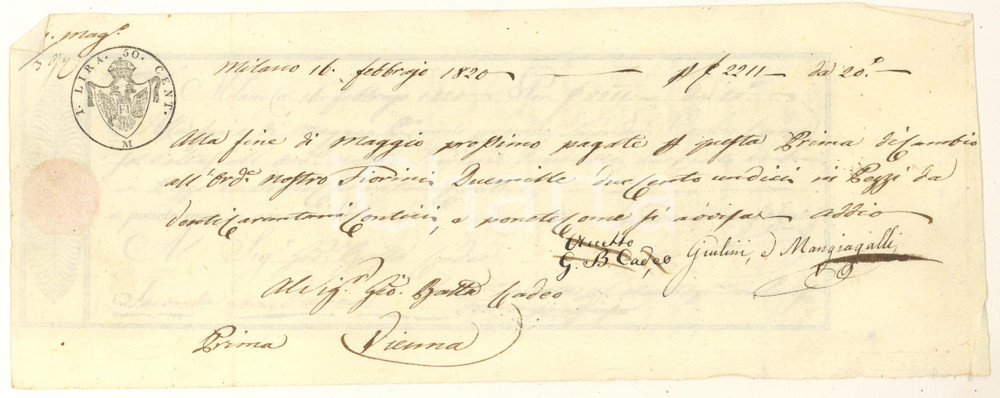 p. mag.º
1. LIRA. 50. CENT.
F I
M
Milano 16. febbrajo 1820 — p f 2211 — da 20.ⁿ —
Alla fine di Maggio prossimo pagate p questa Prima di Cambio
all' Ord.ᵉ nostro Fiorini Duemille duecento undici in Pezzi da
Venti Carantani Contivi, e ponete Come si avvisa addio
Accetto
G. B. Cadeo Giulini, d Mangiagalli
Al Sig.ʳ Gio. Batta Cadeo
Prima Vienna